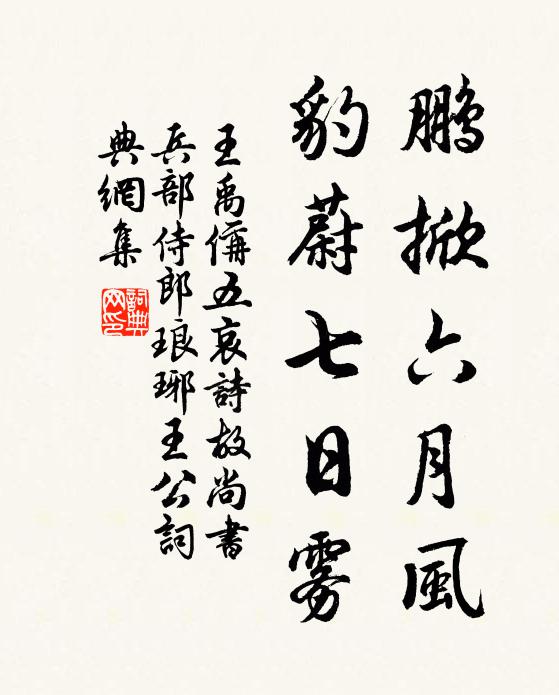 鵬掀六月風
豹蔚七日雾
王禹偁五哀詩故尚書
兵部侍郎琅琊王公詞
典網集
詞典
网印